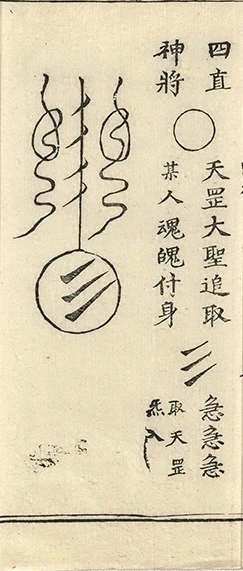 四直
神將
天罡大聖追取
某人魂魄付身
急急急
取天罡
炁入